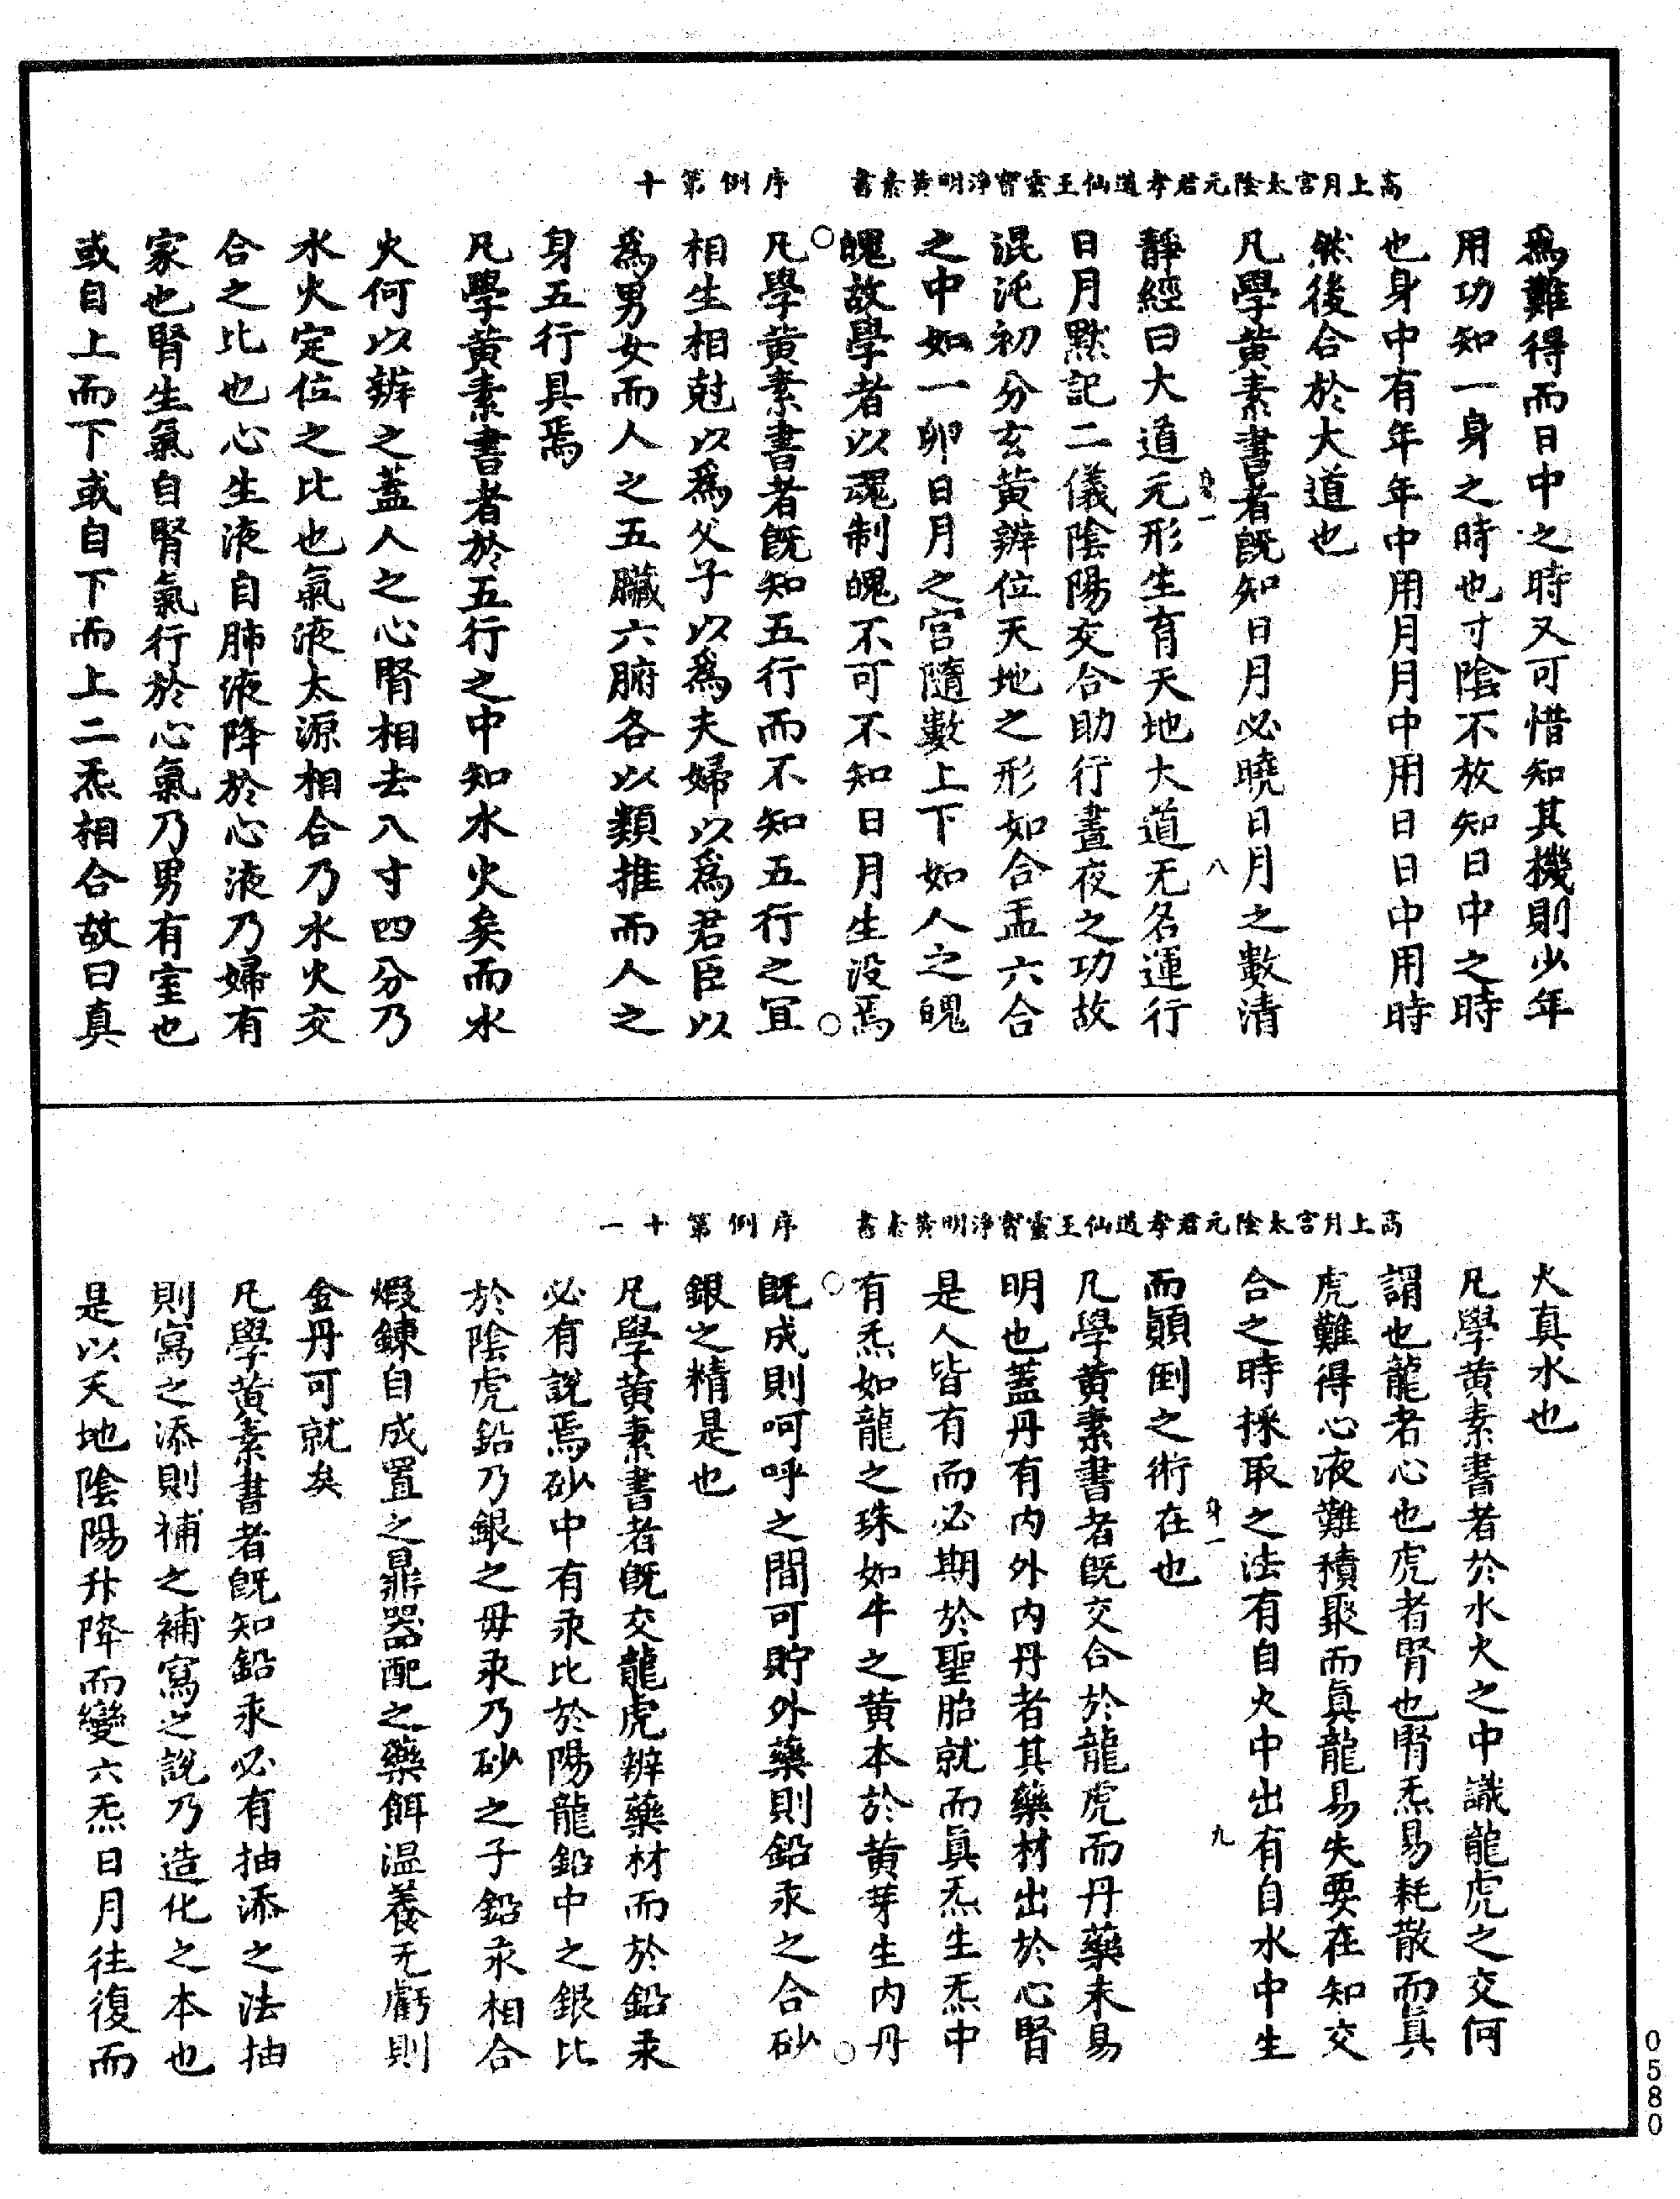 高上月宮太陰元君孝道仙王靈寶淨明黃素書　序例第十
為難得而日中之時又可惜知其機則少年
用功知一身之時也寸陰不放知日中之時
也身中有年年中用月月中用日日中用時
然後合於大道也
凡學黃素書者既知日月必曉日月之數清
身一　八
靜經曰大道元形生育天地大道无名運行
日月默記二儀陰陽交合助行晝夜之功故
混沌初分玄黃辨位天地之形如合盂六合
之中如一卵日月之宮隨數上下如人之魄
魄故學者以魂制魄不可不知日月生沒焉
凡學黃素書者既知五行而不知五行之宜
相生相尅以為父子以為夫婦以為君臣以
為男女而人之五臟六腑各以類推而人之
身五行具焉
凡學黃素書者於五行之中知水火矣而水
火何以辨之蓋人之心腎相去八寸四分乃
水火定位之比也氣液太源相合乃水火交
合之比也心生液自肺液降於心液乃婦有
家也腎生氣自腎氣行於心氣乃男有室也
或自上而下或自下而上二炁相合故曰真
高上月宮太陰元君孝道仙王靈寶淨明黃素書　序例第十一
火真水也
凡學黃素書者於水火之中識龍虎之交何
謂也龍者心也虎者腎也腎炁易耗散而真
虎難得心液難積聚而真龍易失要在知交
合之時採取之法有自火中出有自水中生
身一　九
而顛倒之術在也
凡學黃素書者既交合於龍虎而丹藥未易
明也蓋丹有內外內丹者其藥材出於心腎
是人皆有而必期於聖胎就而真炁生炁中
有炁如龍之珠如牛之黃本於黃芽生內丹
既成則呵呼之間可貯外藥則鉛汞之合砂
銀之精是也
凡學黃素書者既交龍虎辨藥材而於鉛汞
必有說焉砂中有汞比於陽龍鉛中之銀比
於陰虎鉛乃銀之母汞乃砂之子鉛汞相合
煆鍊自成置之鼎器配之藥餌温養无虧則
金丹可就矣
凡學黃素書者既知鉛汞必有抽添之法抽
則寫之添則補之補寫之說乃造化之本也
是以天地陰陽升降而變六炁日月往復而
0580